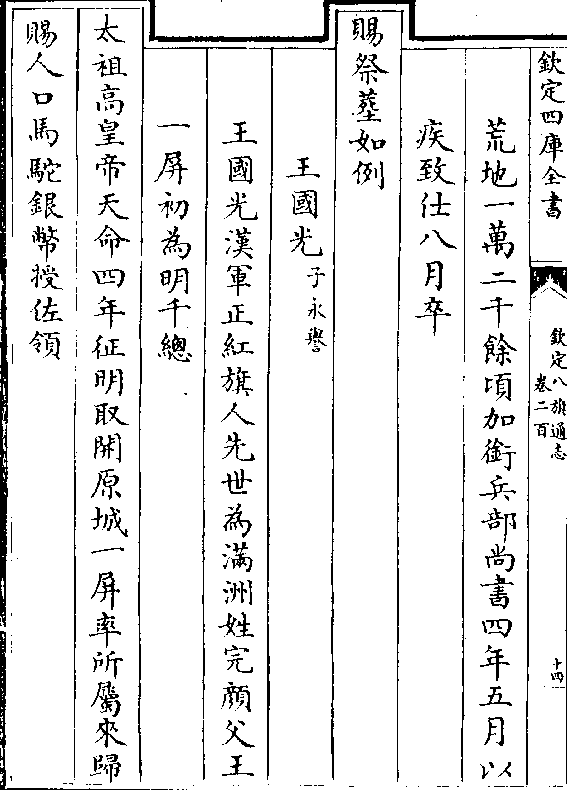 欽定四庫全書
欽定八旗通志
卷二百
十四
荒地一萬二千餘頃加銜兵部尚書四年五月以
疾致仕八月卒
賜祭塟如例
王國光子永譽
王國光漢軍正紅旗人先世為滿洲姓完顏父王
一屏初為明千總
太祖高皇帝天命四年征明取開原城一屏率所屬來歸
賜人口馬駝銀幣授佐領